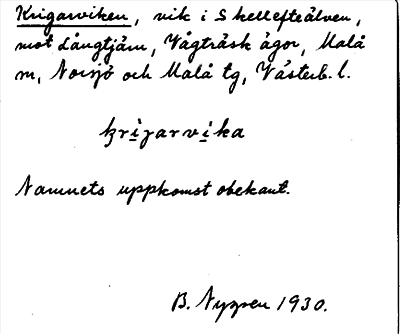 Krigarviken, vik i Skellefteälven,
mot Långtjärn, Vågträsk ägor, Malå
sn, Norsjö och Malå tg, Västerb. l.
krigarvika
Namnets uppkomst obekant.
B. Nygren 1930.